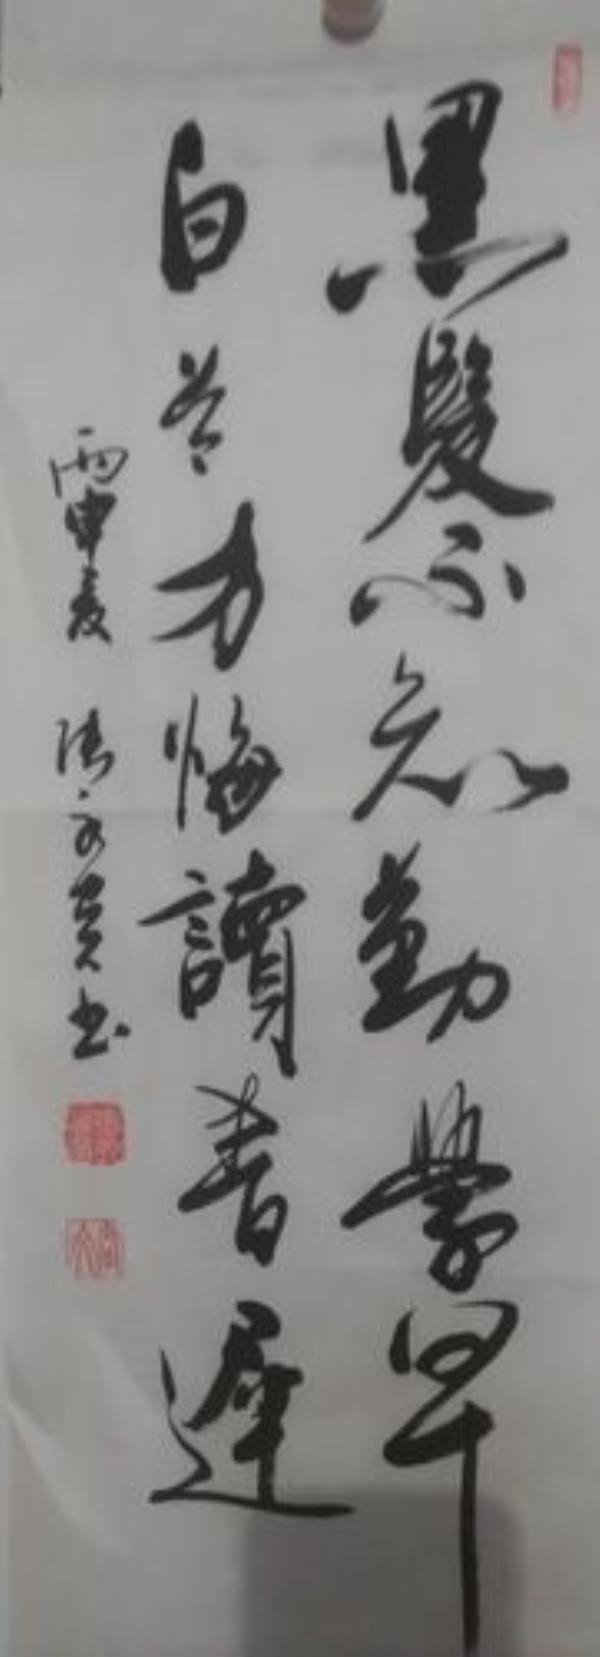 黑髮不知勤學早
白首方悔讀書遲
丙申夏 陸永貴書